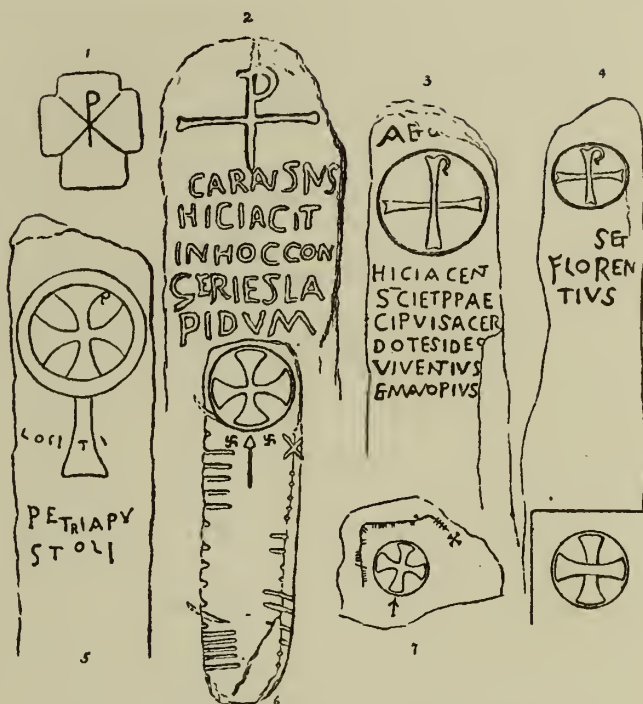 1
2
CARAVSNS
HICIACIT
INHOCCON
GERIESLA
PIDVM
3
HICIACENT
SCIETPPAE
CIPVISACER
DOTESIDES
VIVENTIVS
EMAVOPIVS
4
SE
FLOREN
TIVS
LOCI
PETRIAPV
STOLI
5
6
7